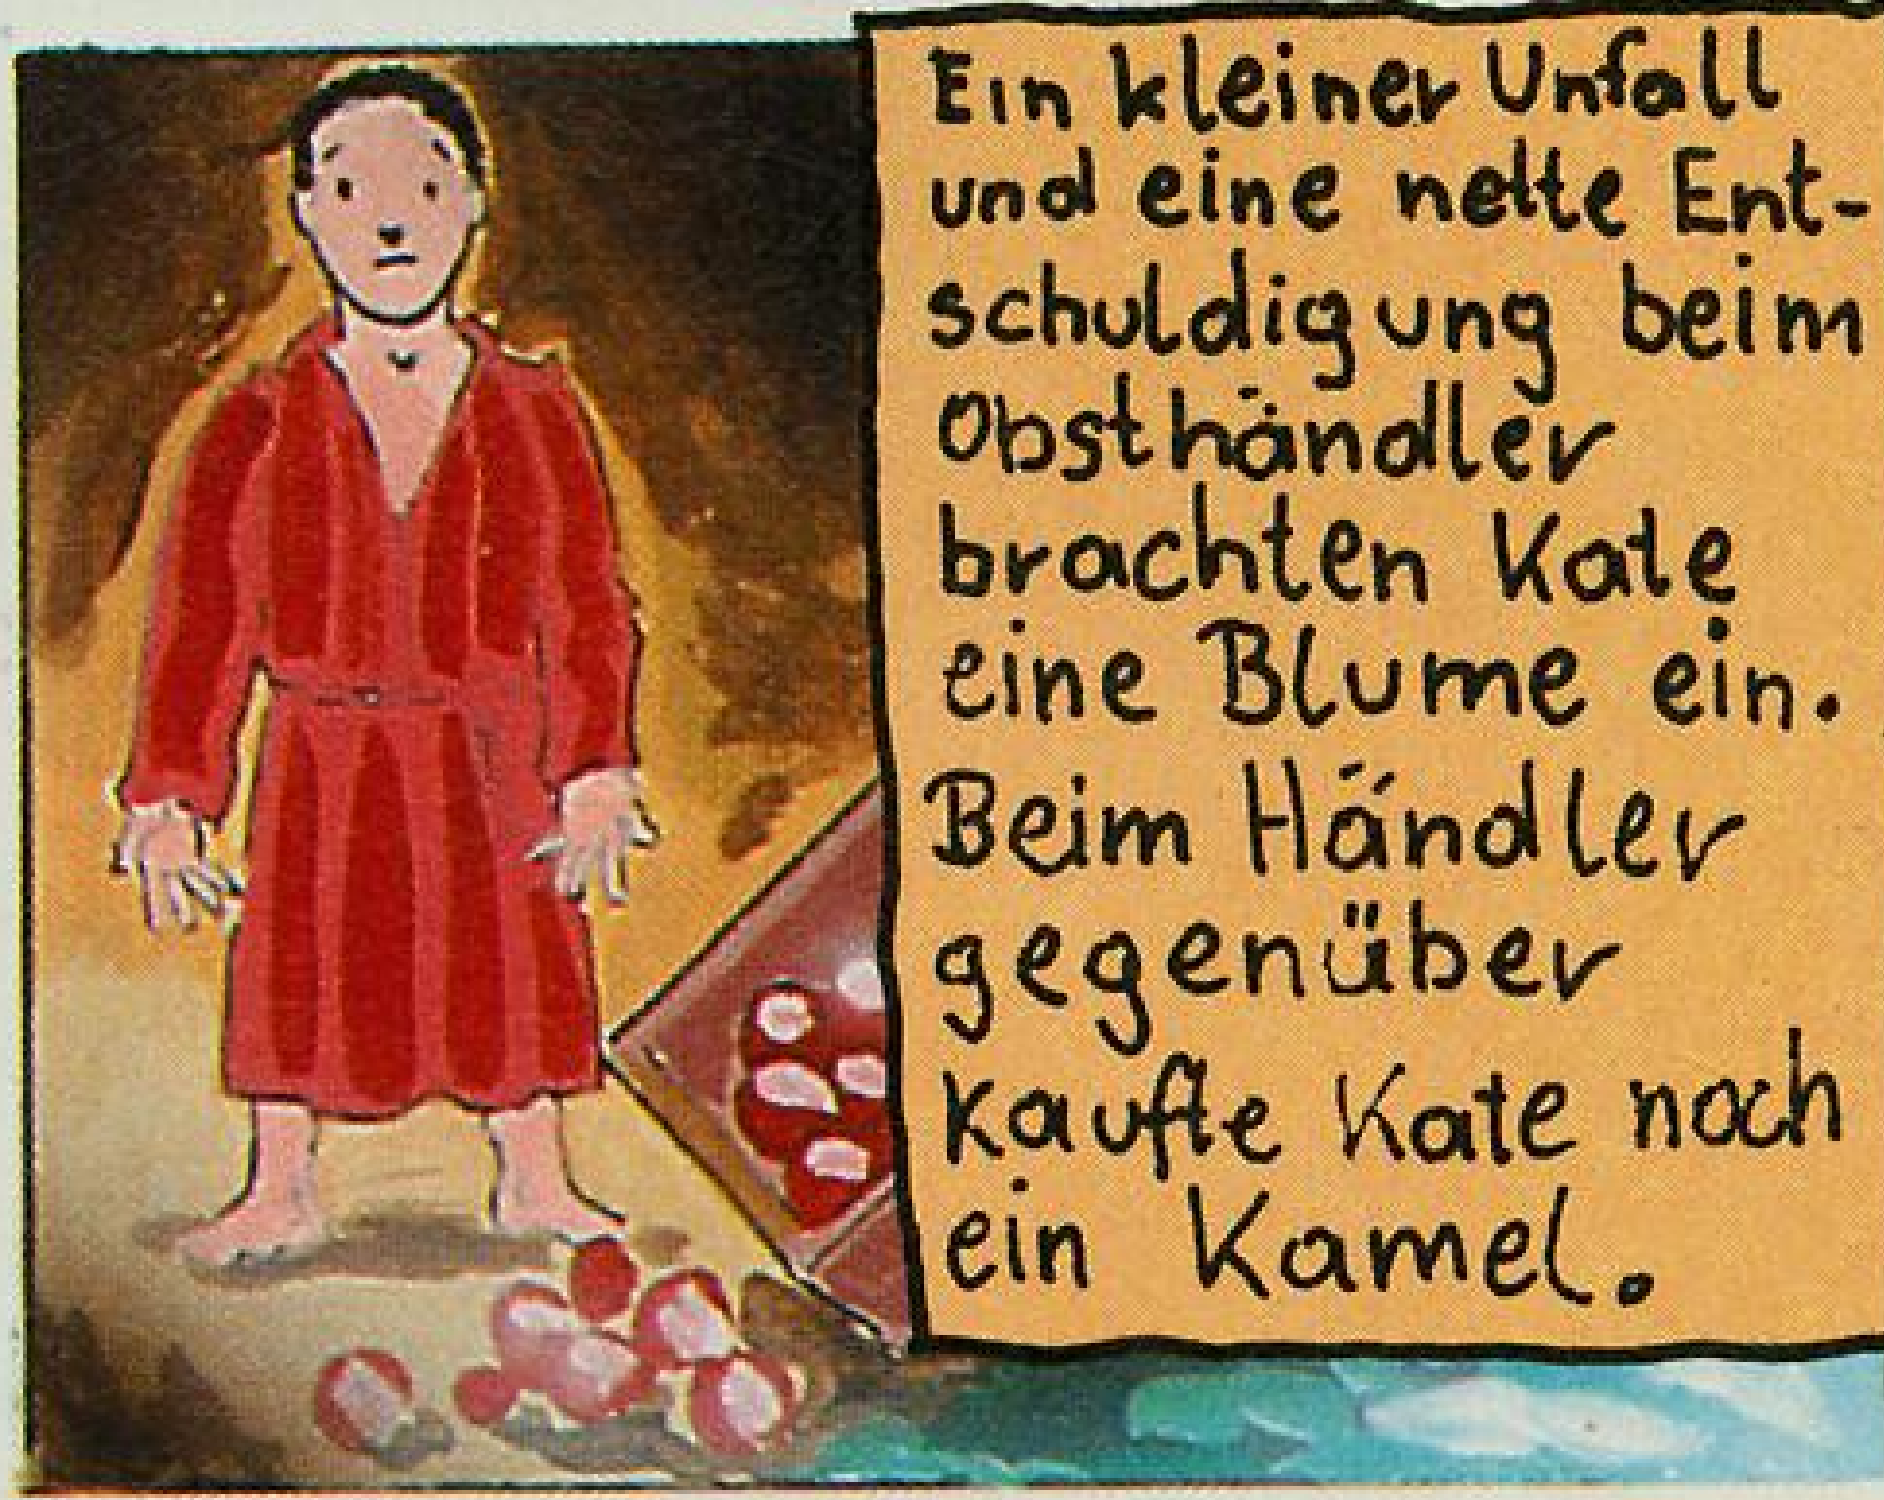 Ein kleiner Unfall
und eine nette Ent-
schuldigung beim
Obsthändler
brachten Kate
eine Blume ein.
Beim Händler
gegenüber
kaufte Kate noch
ein Kamel.